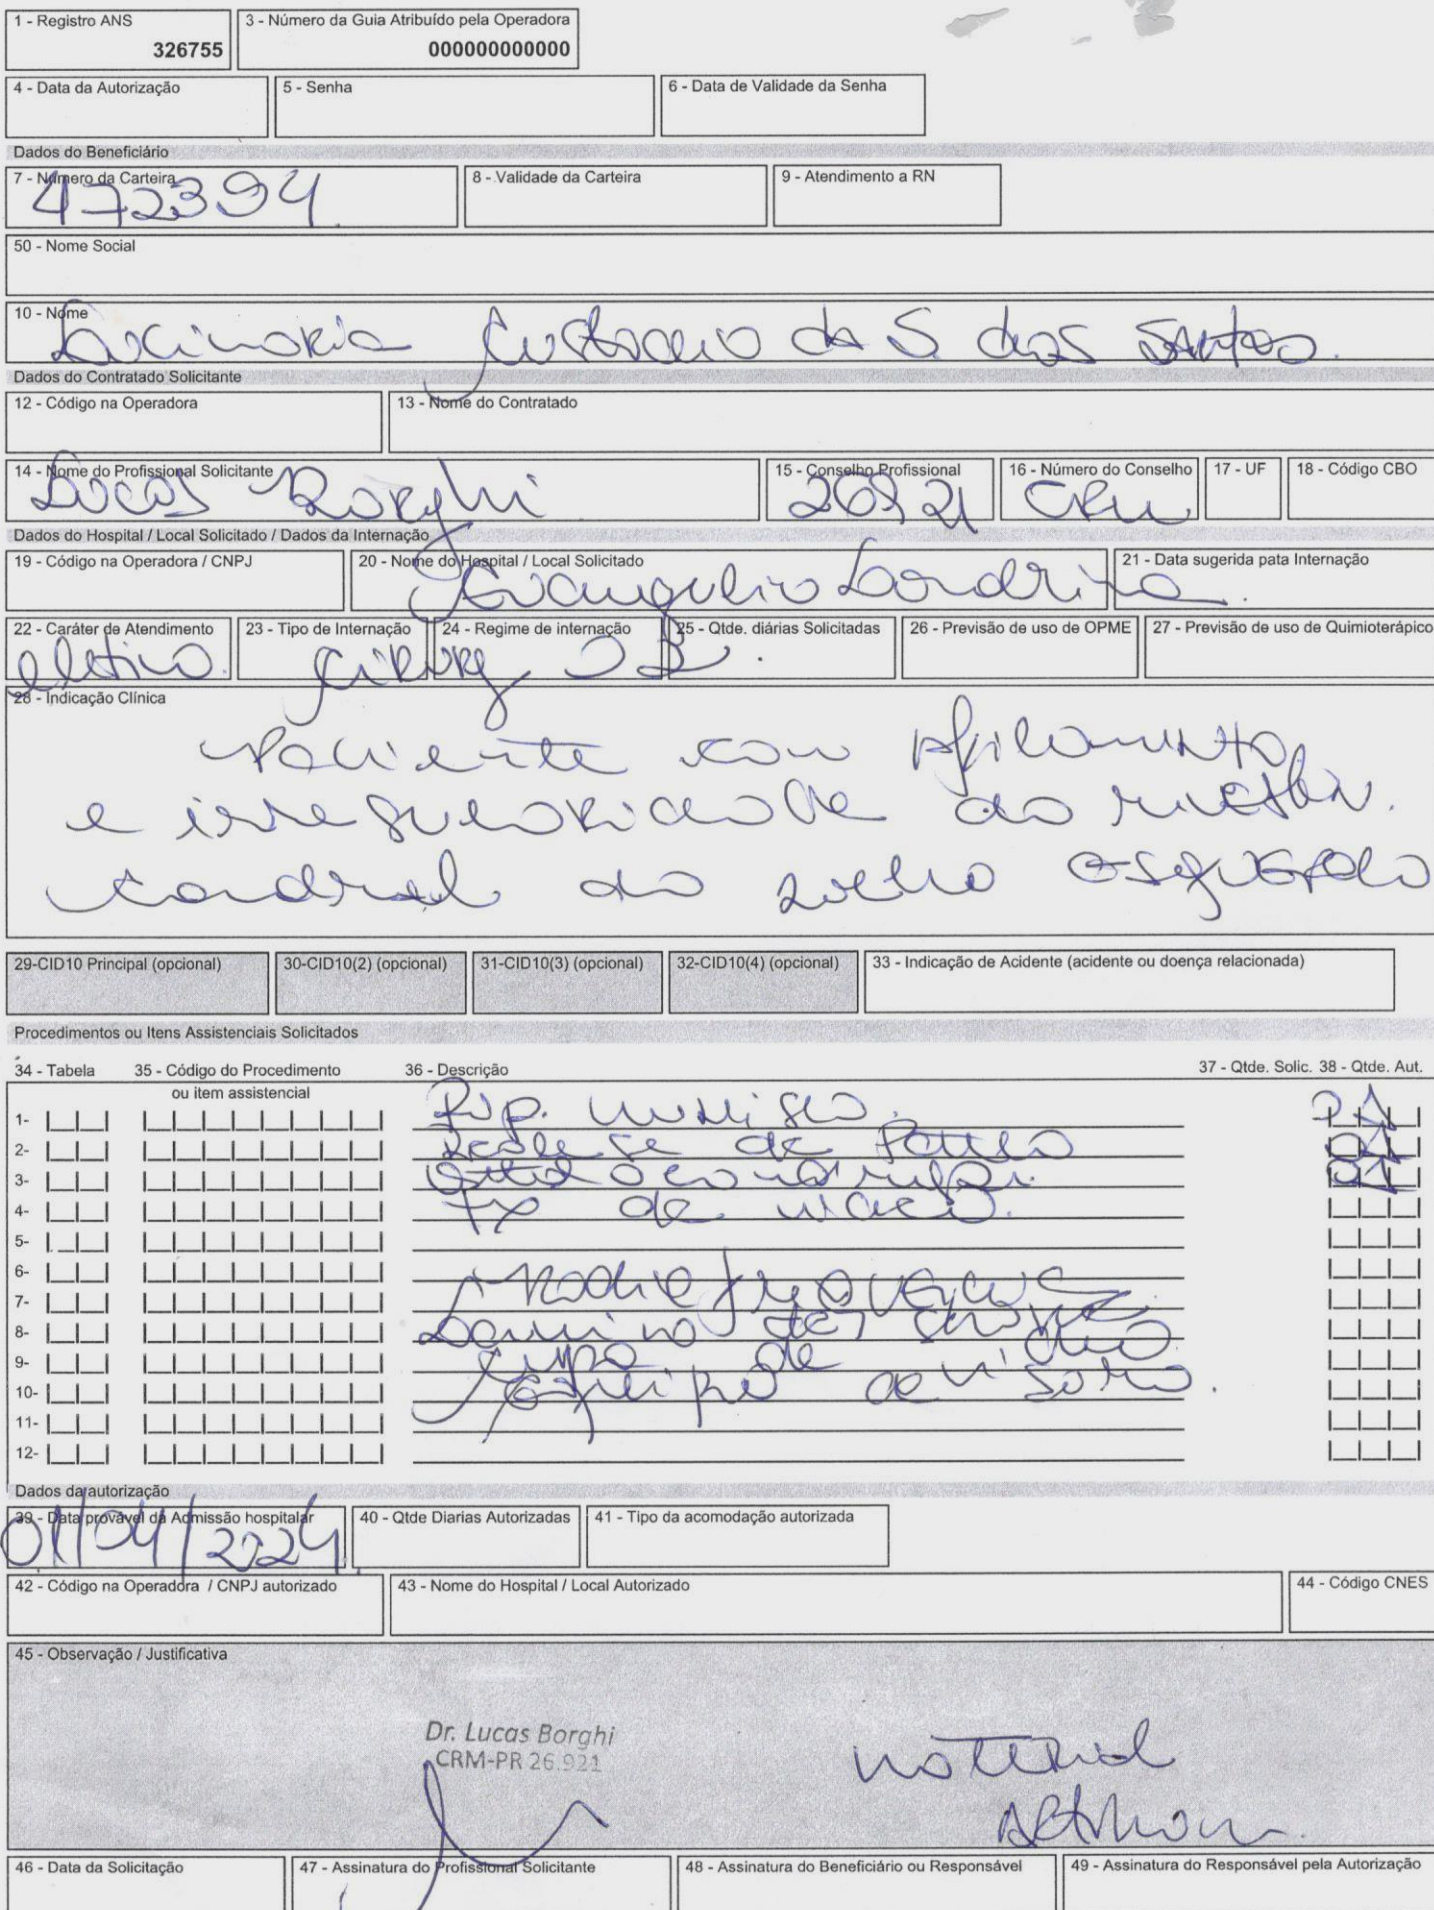 1 - Registro ANS
326755
3 - Número da Guia Atribuído pela Operadora
000000000000
4 - Data da Autorização
5 - Senha
6 - Data de Validade da Senha
Dados do Beneficiário
7 - Número da Carteira
472394
8 - Validade da Carteira
9 - Atendimento a RN
50 - Nome Social
10 - Nome
Lucimaria Custodio da S. dos Santos.
Dados do Contratado Solicitante
12 - Código na Operadora
13 - Nome do Contratado
14 - Nome do Profissional Solicitante
Lucas Borghi
15 - Conselho Profissional
26921
16 - Número do Conselho
CRM
17 - UF
18 - Código CBO
Dados do Hospital / Local Solicitado / Dados da Internação
19 - Código na Operadora / CNPJ
20 - Nome do Hospital / Local Solicitado
Londrina.
21 - Data sugerida pata Internação
22 - Caráter de Atendimento
eletivo.
23 - Tipo de Internação
24 - Regime de internação
25 - Qtde. diárias Solicitadas
26 - Previsão de uso de OPME
27 - Previsão de uso de Quimioterápico
28 - Indicação Clínica
Paciente com Afilamento
e irregularidade do
condral do joelho esquerdo
29-CID10 Principal (opcional)
30-CID10(2) (opcional)
31-CID10(3) (opcional)
32-CID10(4) (opcional)
33 - Indicação de Acidente (acidente ou doença relacionada)
Procedimentos ou Itens Assistenciais Solicitados
34 - Tabela
35 - Código do Procedimento
ou item assistencial
36 - Descrição
37 - Qtde. Solic.
38 - Qtde. Aut.
1-
2- de 01
3- 01
4- de
5-
6-
7-
8- Lamina de
9- de
10- Equipo de soro.
11-
12-
Dados da autorização
39 - Data provável da Admissão hospitalar
01/04/2024
40 - Qtde Diarias Autorizadas
41 - Tipo da acomodação autorizada
42 - Código na Operadora / CNPJ autorizado
43 - Nome do Hospital / Local Autorizado
44 - Código CNES
45 - Observação / Justificativa
Dr. Lucas Borghi
CRM-PR 26.921
material
46 - Data da Solicitação
47 - Assinatura do Profissional Solicitante
48 - Assinatura do Beneficiário ou Responsável
49 - Assinatura do Responsável pela Autorização